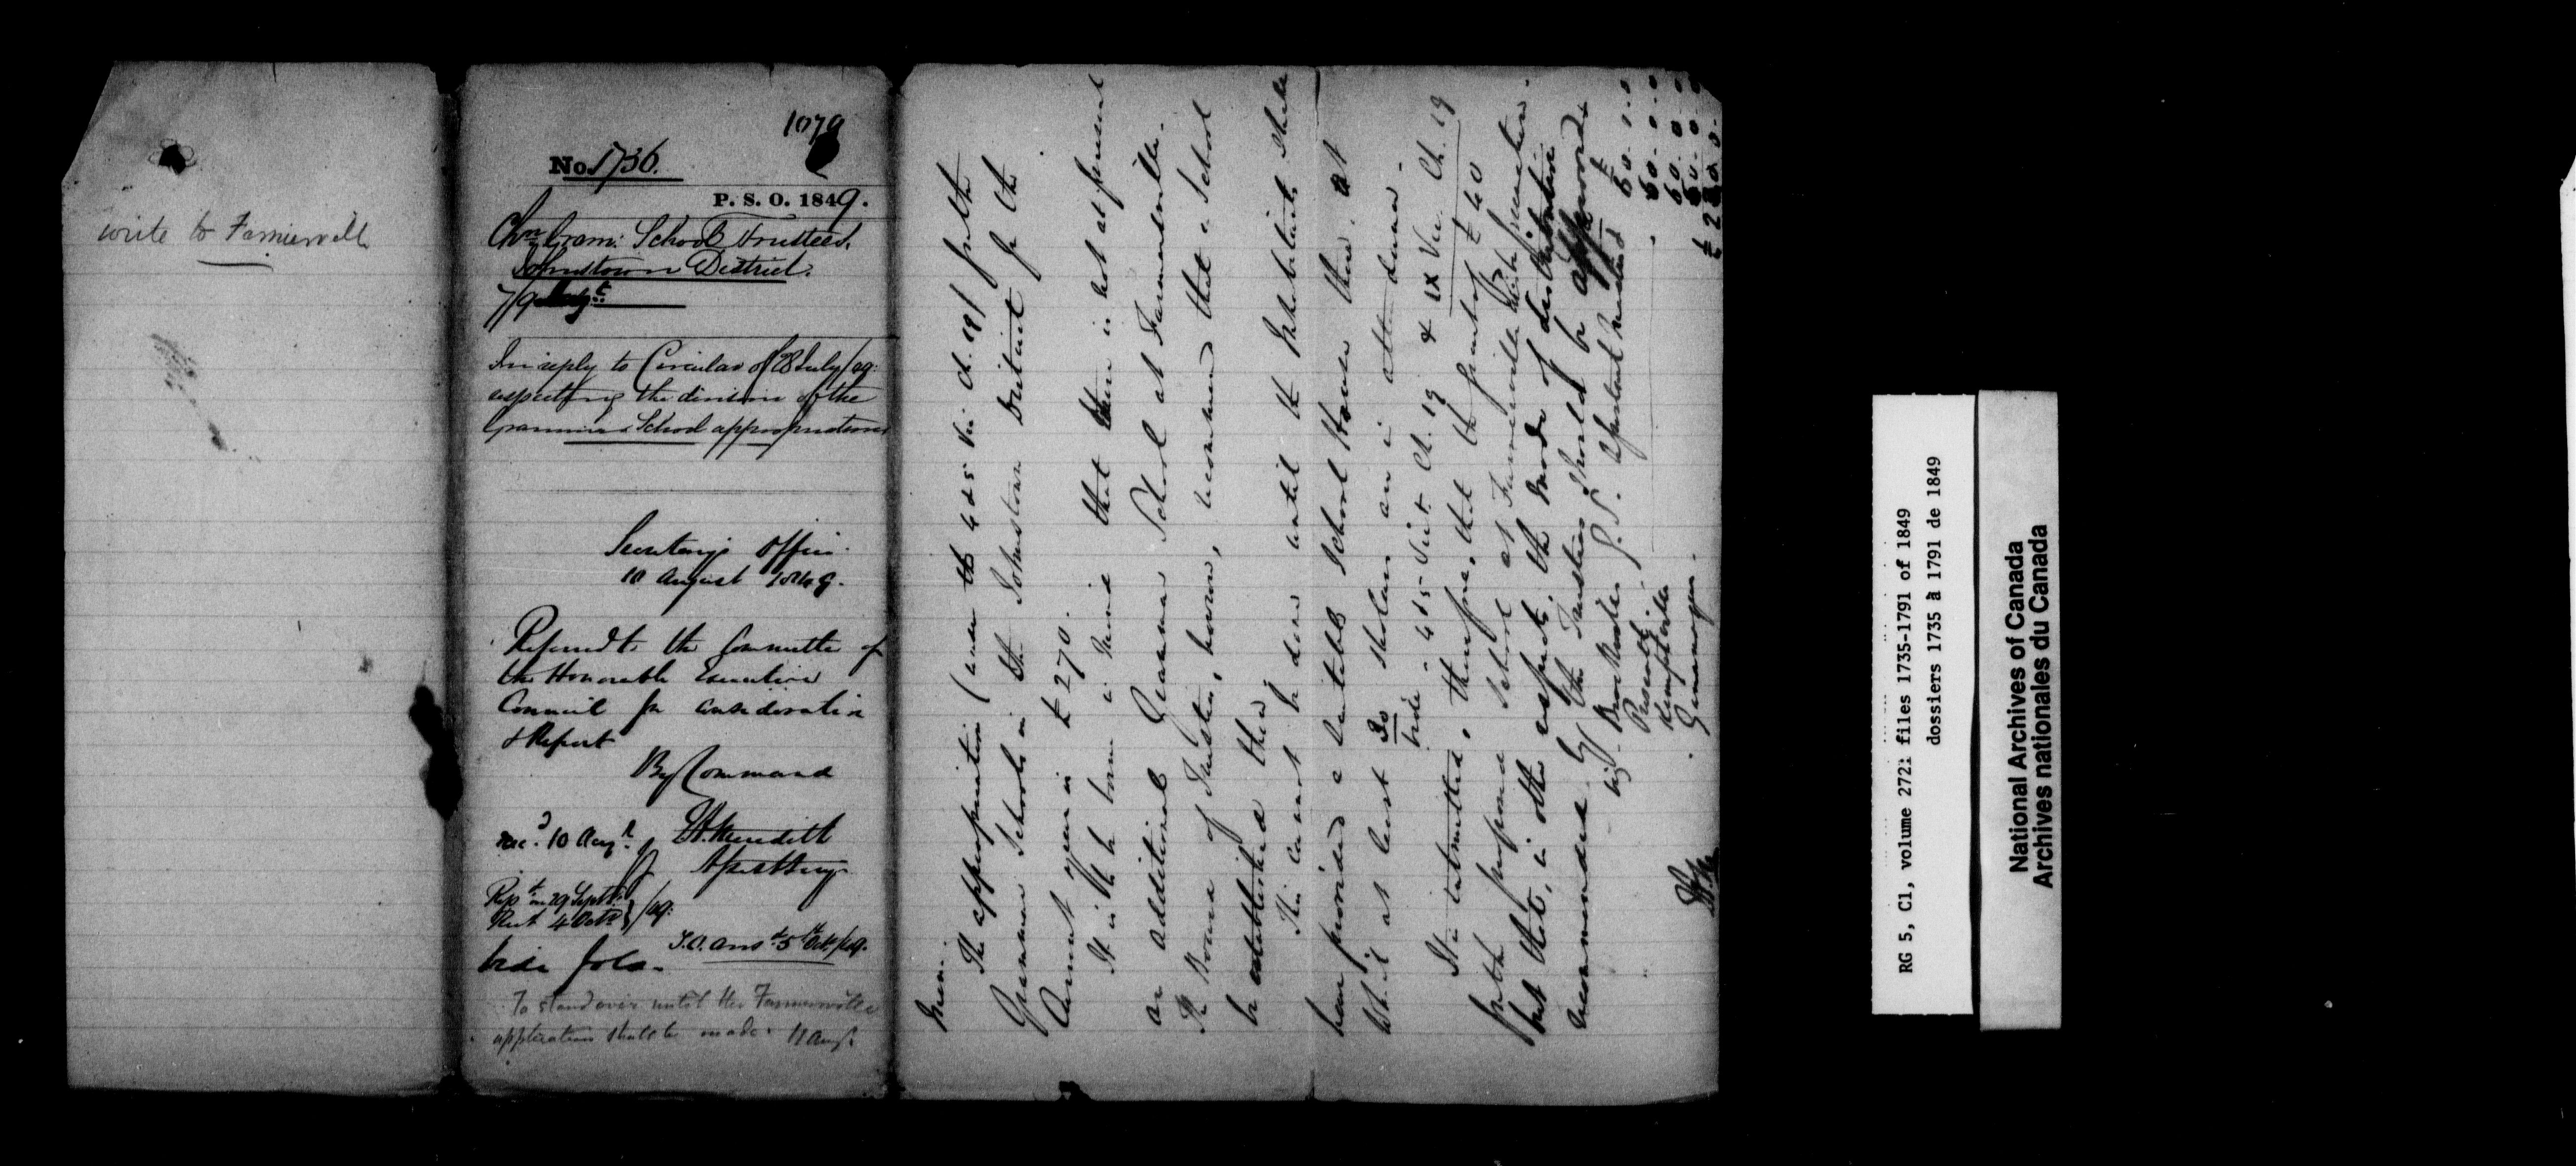 write to Farmersville
1079
No. 1736.
P. S. O. 1849.
Chn Gram: School Trustees,
Johnstown District.
7/9 Augt
In reply to Circular of 28 July/49:
respecting the division of the
Grammar School appropriations
Secretary's Office
10 August 1849.
Referred to the Committee of
the Honorable Executive
Council for consideration
& Report
By Command
Recd. 10 Augt.
E.A. Meredith
Asst Secy
Rept. on 29 Septr.
4 Octr. /49:
S.O. anst. 5th Octr./49.
vide fola-
To stand over until the Farmersville
application shall be made. 11 Augt.
Mem:
The appropriation (under the 4 & 5 Vic Ch. 19) for the
Grammar Schools in the Johnstown District for the
Current year is £270.
It is to be borne in mind that there is not at present
an additional Grammar School at Farmersville.
The Board of Trustees, however, recommend that a School
be established there.
This cannot be done until the Inhabitants shall
have provided a suitable School House there, at
which at least 30 scholars are in attendance.
vide - 4 & 5 Vict. Ch. 19 & IX Vic. Ch. 19
It is submitted, therefore, that the grant of £40
for the proposed School at Farmersville
but that, in other respects, the mode of distribution
recommended by the Trustees should be approved
viz. Brockville G.S.
£60. 0. 0
Prescott
60. 0. 0
Kemptville
60. 0. 0
Gananoque
£230. 0. 0.
RG 5, C1, volume 272: files 1735-1791 of 1849
dossiers 1735 à 1791 de 1849
National Archives of Canada
Archives nationales du Canada